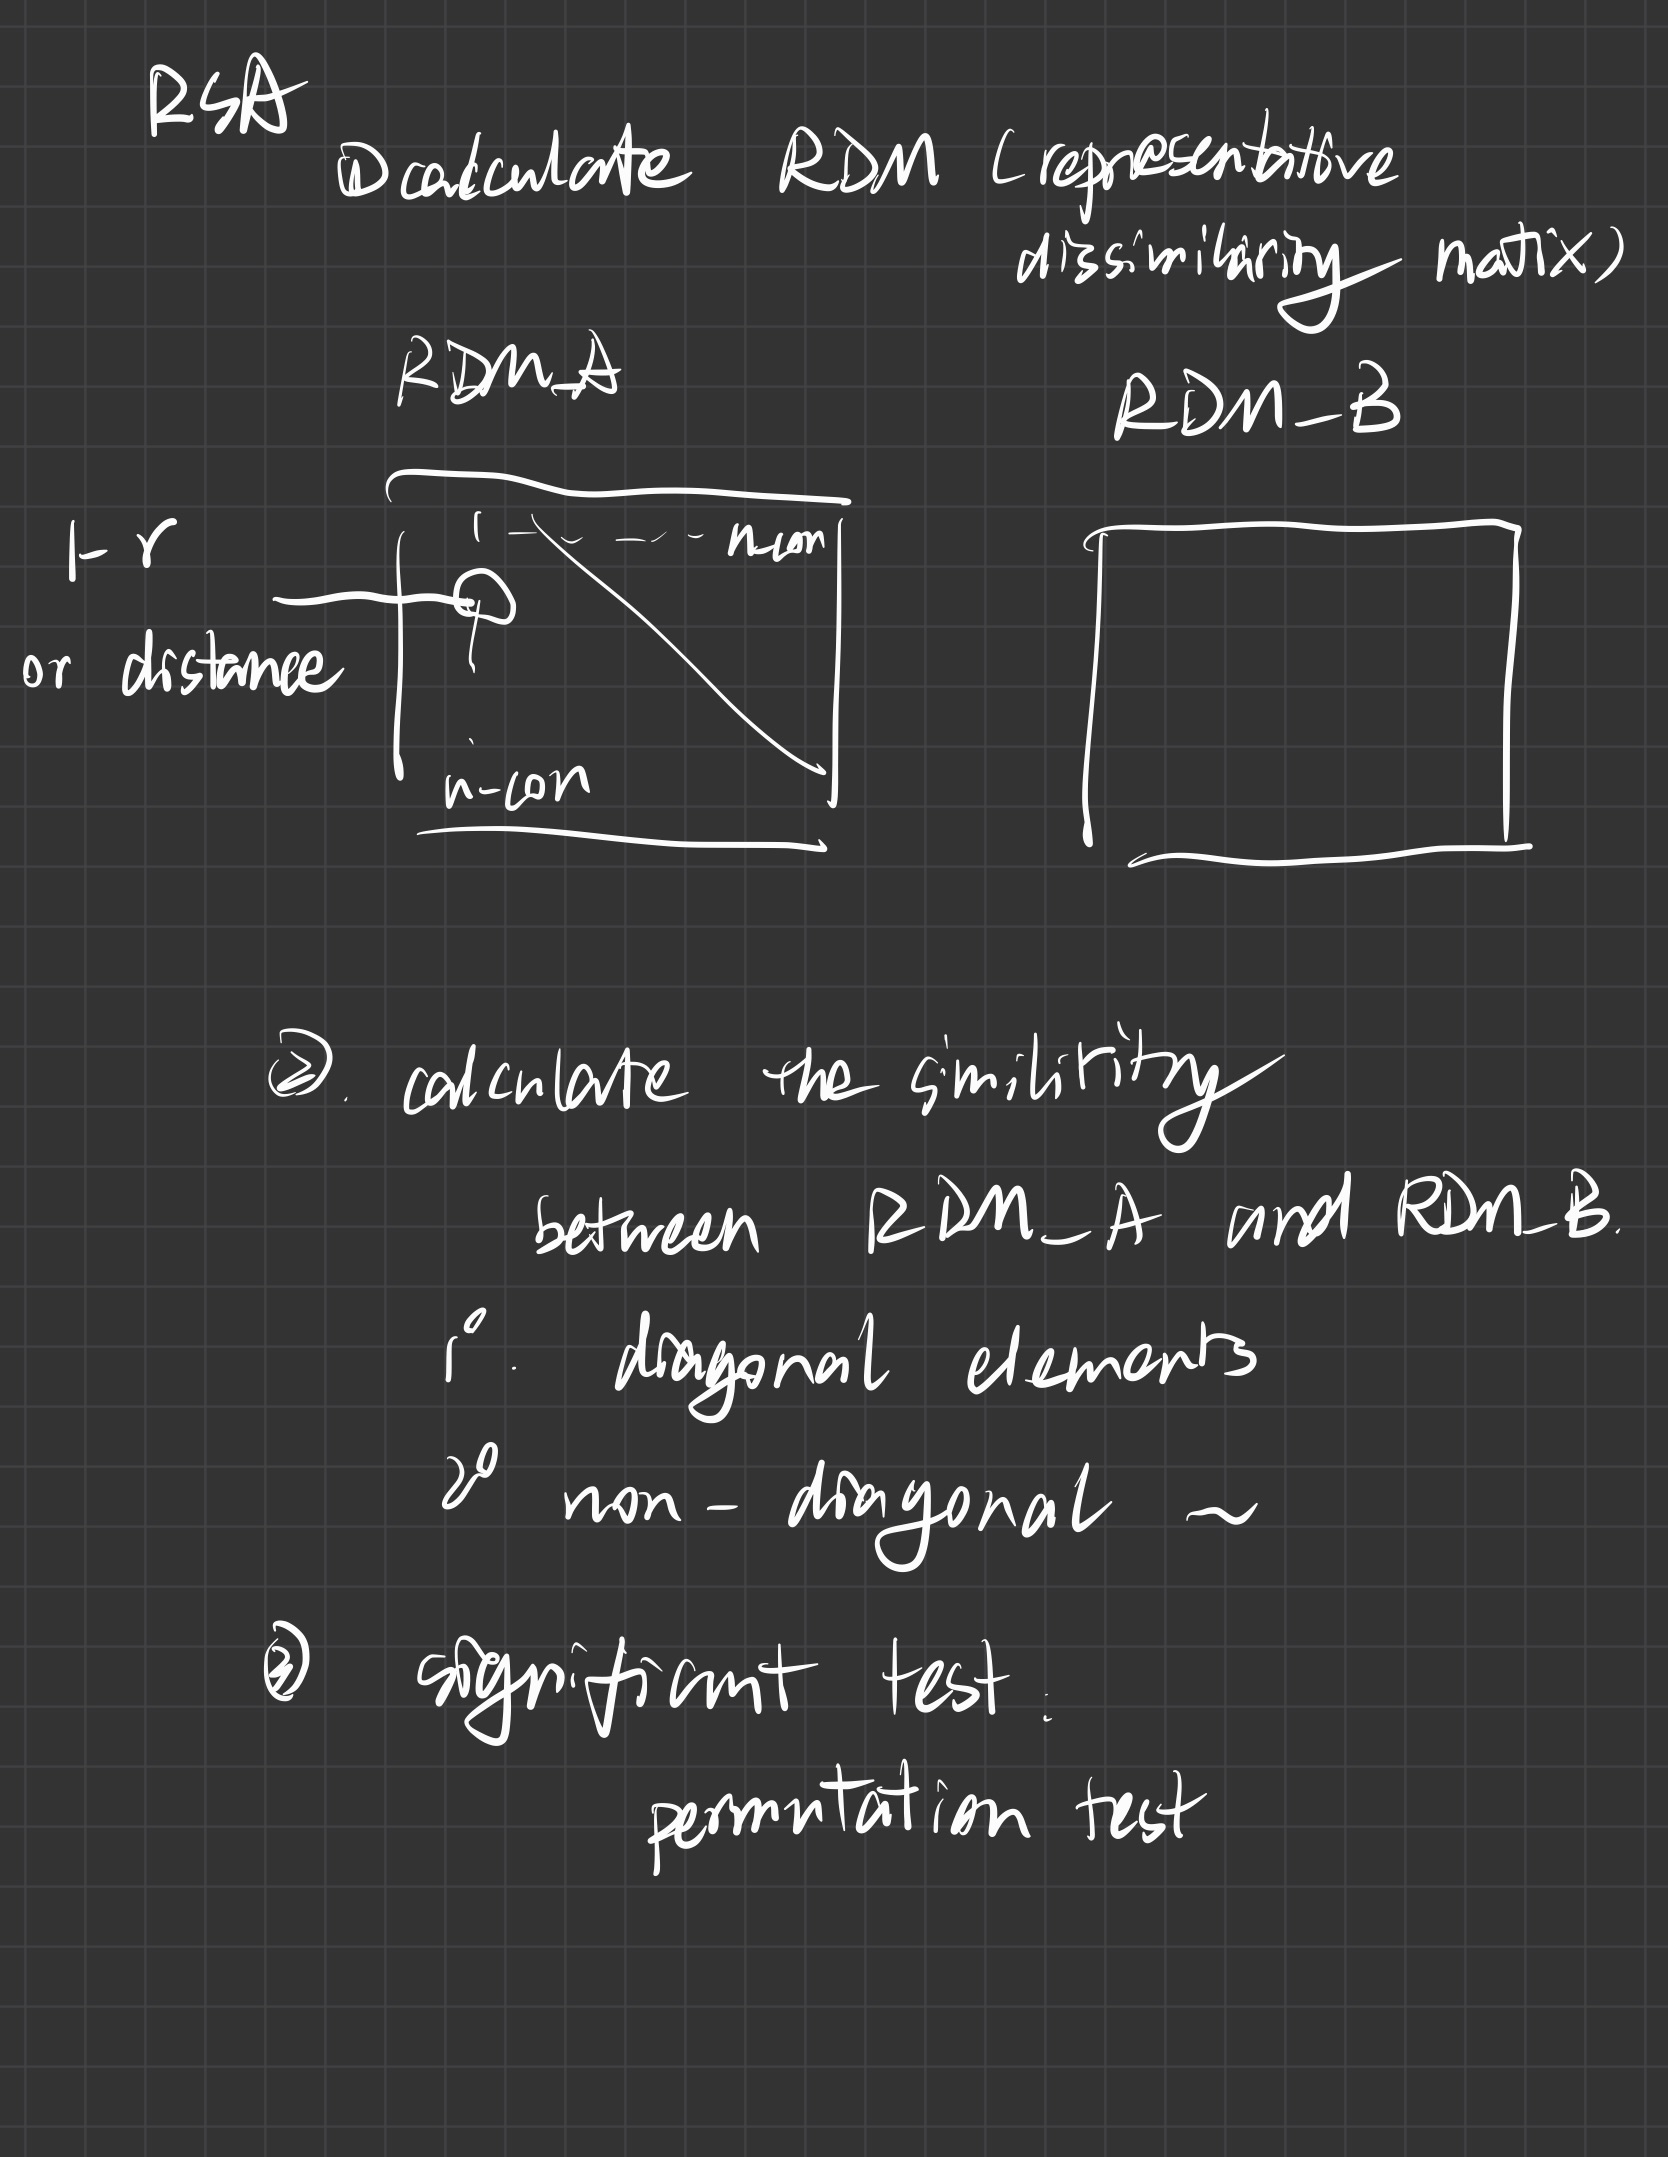 RSA
① calculate RDM (representative
dissimilarity matix)
RDM_A
RDM_B
1 - - - - - n-con
1-r
or distance
n-con
②. calculate the similirity
between RDM_A and RDM_B.
1°. diagonal elements
2° non-diagonal ~
③ significant test:
permutation test